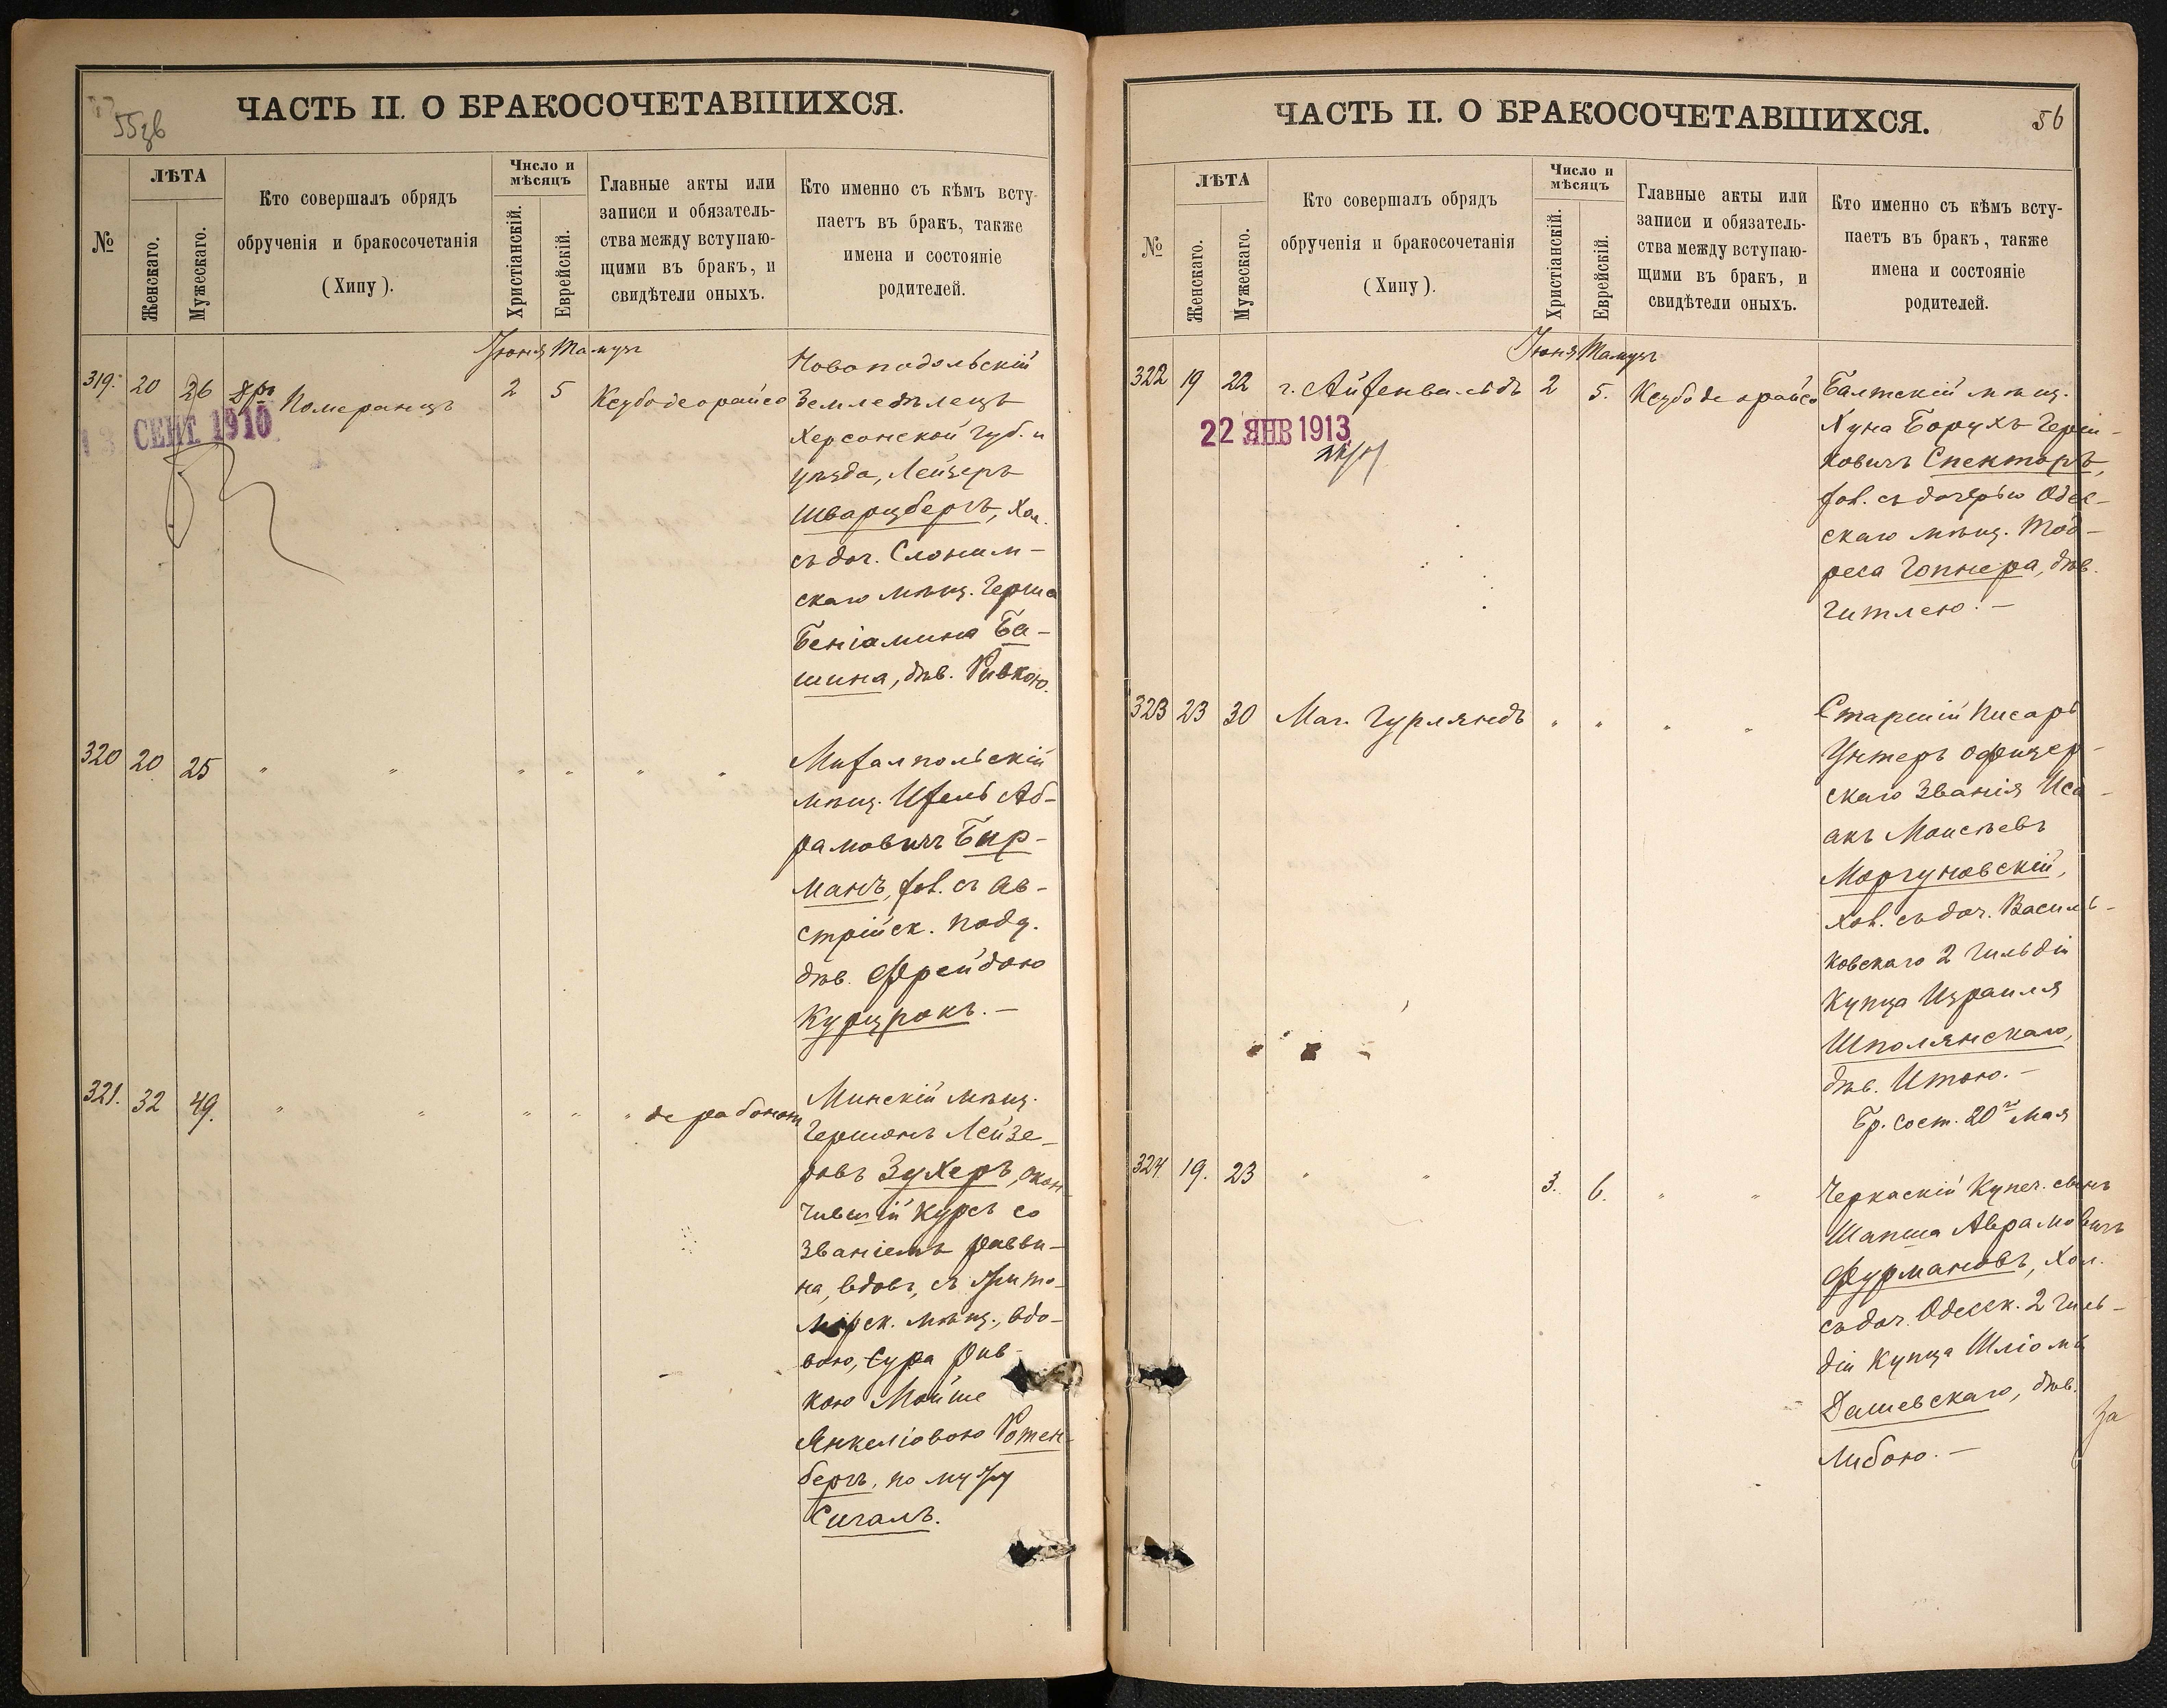 55 зв
ЧАСТЬ II. О БРАКОСОЧЕТАВШИХСЯ.
№
ЛѢТА
Женскаго.
Мужескаго.
Кто совершалъ обрядъ
обрученія и бракосочетанія
(Хипу).
Число и
мѣсяцъ
Христіанскій.
Еврейскій.
Главные акты или
записи и обязатель-
ства между вступаю-
щими въ бракъ, и
свидѣтели оныхъ.
Кто именно съ кѣмъ всту-
паетъ въ бракъ, также
имена и состояніе
родителей.
Іюня Тамузъ
319. 20 26 Померанцъ 2 5 Ксубо деорайсо
СЕНТ. 1910
Новоподольскій
Земледѣлецъ
Херсонской губ. и
уѣзда, Лейзеръ
Шварцбергъ, Хол.
съ доч. Слоним-
скаго мѣщ. Герша
Беніамина Ба-
шина, дѣв. Ривкою.
320 20 25 " " " " " "
Мижалпольскій
мѣщ. Ижель Аб-
рамовичъ Бир-
манъ, хол. съ Ав-
стрійск. подд.
дѣв. Фрейдою
Курцрокъ. —
321. 32 49. " " " " " де рабонон
Минскій мѣщ.
Гершонъ Лейзе-
ровъ Зухеръ, окон-
чившій курсъ со
званіемъ равви-
на, вдов., съ Жито-
мірск. мѣщ., вдо-
вою, Сура Рив-
кою Мойше
Янкеліовою Ротен-
бергъ, по мужу
Сигалъ.
ЧАСТЬ II. О БРАКОСОЧЕТАВШИХСЯ.
56
№
ЛѢТА
Женскаго.
Мужескаго.
Кто совершалъ обрядъ
обрученія и бракосочетанія
(Хипу).
Число и
мѣсяцъ
Христіанскій.
Еврейскій.
Главные акты или
записи и обязатель-
ства между вступаю-
щими въ бракъ, и
свидѣтели оныхъ.
Кто именно съ кѣмъ всту-
паетъ въ бракъ, также
имена и состояніе
родителей.
Іюня Тамузъ
322 19 22 г. Айзенвальдъ 2 5. Ксубо де орайсо
22 ЯНВ 1913
Балтскій мѣщ.
Хуна Борухъ Герш-
ковичъ Спекторъ,
хол. съ дочерью Одес-
скаго мѣщ. Тод-
реса Гопнера, дѣв.
Гитлею. —
323 23 30 Маг. Гурляндъ " " " "
Старшій Писарь
Унтеръ офицер-
скаго званія Иса-
акъ Моисѣевъ
Моргуновскій,
хол. съ доч. Василь-
ковскаго 2 гильдіи
Купца Израиля
Шполянскаго,
дѣв. Итою. —
Бр. сост. 20го Мая
324. 19. 23 " " 3. 6. " "
Черкаскій Купеч. сынъ
Шапша Аврамовичъ
Фурмановъ, Хол.
съ доч. Одесск. 2 гиль-
діи Купца Шліомы
Дашевскаго, дѣв.
Либою. —
За